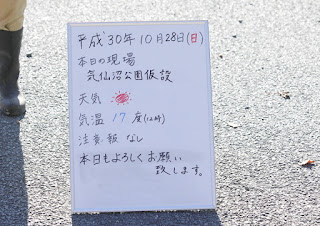 平成30年10月28日(日)
本日の現場
気仙沼公園仮設
天気
気温 17度(12時)
注意報 なし
本日もよろしくお願い
致します。